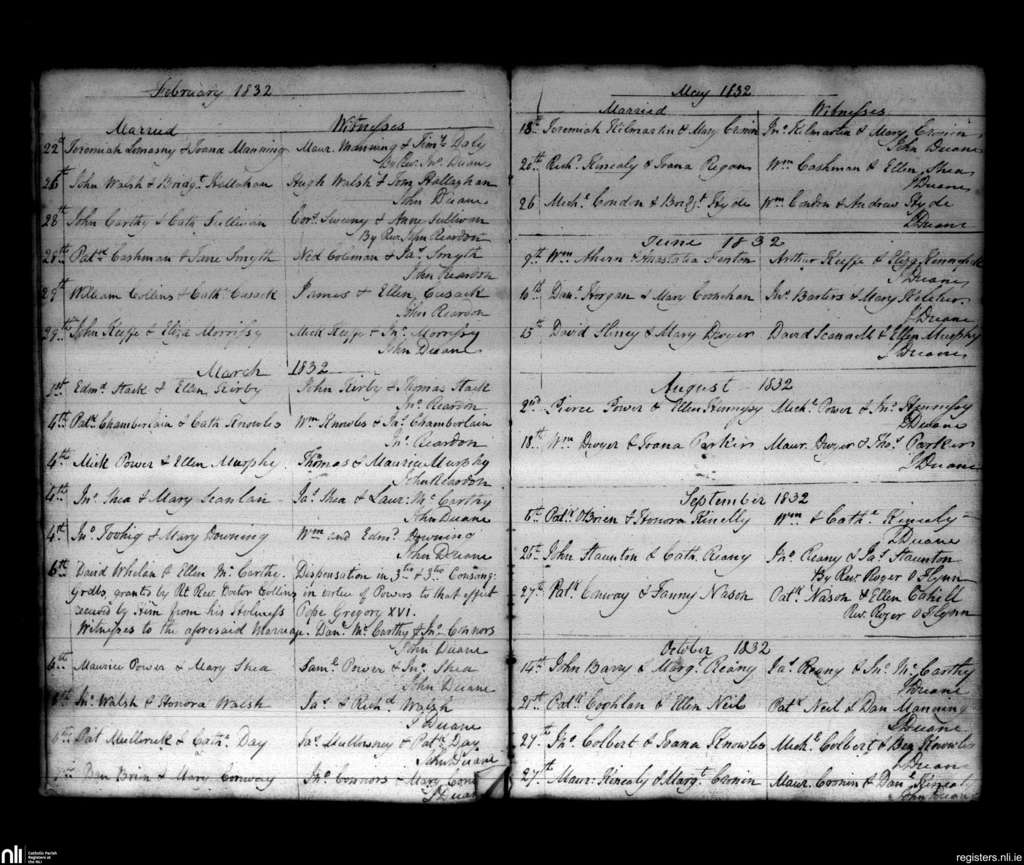 February 1832
Married Witnesses
22nd Jeremiah Lomasny & Joana Manning Maur. Manning & Timy. Daly
By Revd. Jno. Duane
26th John Walsh & Bridgt. Hugh Walsh & Tom Hallaghan
John Duane
28th John Carthy & Cath. Sullivan Cors. Sweeny & Anne Sullivan
By Rev. John Reardon
28th Patk. Cashman & Jane Smyth Ned Coleman & Jas. Smyth
John Reardon
29th William Collins & Cathe. Cusack James & Ellen Cusack
John Reardon
29th John Keeffe & Eliza Morrissy Mick Keeffe & Jno. Morrissy
John Duane
March 1832
1st Edmd. Stack & Ellen Kirby John Kirby & Thomas Stack
Jno. Reardon
4th Patk. Chamberlain & Cath. Knowles Wm. Knowles & Jas. Chamberlain
Jno. Reardon
4th Mick Power & Ellen Murphy Thomas & Maurice Murphy
John Reardon
4th Jno. Shea & Mary Scanlan Jas. Shea & Laur: Mc. Carthy
John Duane
4th Jno. Toohig & Mary Downing Wm. and Edmd. Downing
John Duane
6th David Whelan & Ellen Mc. Carthy. Dispensation in 3tio & 3tio Consang:
Grdbs, grants by Rt Revd. Doctor Collins in virtue of Powers to that effect
received by Him from his Holiness Pope Gregory XVI.
Witnesses to the aforesaid Marriage. Danl. Mc. Carthy & Jno. Connors
John Duane
6th Maurice Power & Mary Shea Saml. Power & Jno. Shea
John Duane
6th Jno. Walsh & Honora Walsh Jas. & Richd. Walsh
J Duane
6th Pat & Cathe. Day Jas. & Patk. Day
John Duane
Dan Brien & Mary Conway Jno. Connors & Mary
J Duane
May 1832
Married Witnesses
18th Jeremiah Kilmartin & Mary Cronin Jno. Kilmartin & Mary Cronin
John Duane
20th Richd. Kinealy & Joana Regan Wm. Cashman & Ellen Shea
J Duane
26 Michl. Condon & Bridgt. Hyde Wm. Condon & Andrew Hyde
J Duane
June 1832
9th Wm. Ahern & Anastatia Fenton Arthur Keeffe & Eliza
J Duane
10th Danl. Horgan & Mary Jno. Barters & Mary Kelcher
J Duane
15th David Hiney & Mary Dwyer David Scannell & Ellen Murphy
J Duane
August 1832
2nd Pierce Power & Ellen Hennessy Michl. Power & Jno. Hennessy
J Duane
18th Wm. Dwyer & Joana Parker Maur. Dwyer & Thos. Parker
J Duane
September 1832
6th Patk. OBrien & Honora Kinelly Wm. & Cathe. Kinealy
J Duane
25th John Staunton & Cath. Reany Jno. Reany & Jas. Staunton
By Revd. Roger O Flynn
27th Patk. Conway & Fanny Nason Patk. Nason & Ellen Cahill
Revd. Roger O Flynn
October 1832
14th John Barry & Margt. Reany Jas. Reany & Jno. Mc. Carthy
J Duane
21st Patk. Coghlan & Ellen Neil Patk. Neil & Dan Manning
J Duane
27th Jno. Colbert & Joana Knowles Michl. Colbert & Ben Knowles
J Duane
27th Maur: Kinealy & Margt. Cronin Maur. Cronin & Danl. Kinealy
John Duane
nli Catholic Parish Registers at the NLI
registers.nli.ie